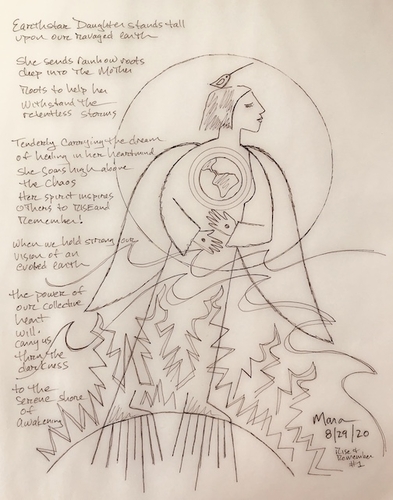 Earthstar Daughter stands tall
upon our ravaged earth
She sends rainbow roots
deep into the Mother
Roots to help her
withstand the
relentless storms
Tenderly Carrying the dream
of healing in her heartmind
she soars high above
the Chaos
Her spirit inspires
others to RISE and
Remember!
when we hold strong our
vision of an
evolved earth
the power of
our collective
heart
will
carry us
thru the
darkness
to the
serene shore
of
awakening
Mara
8/29/20
Rise &
Remember
#1